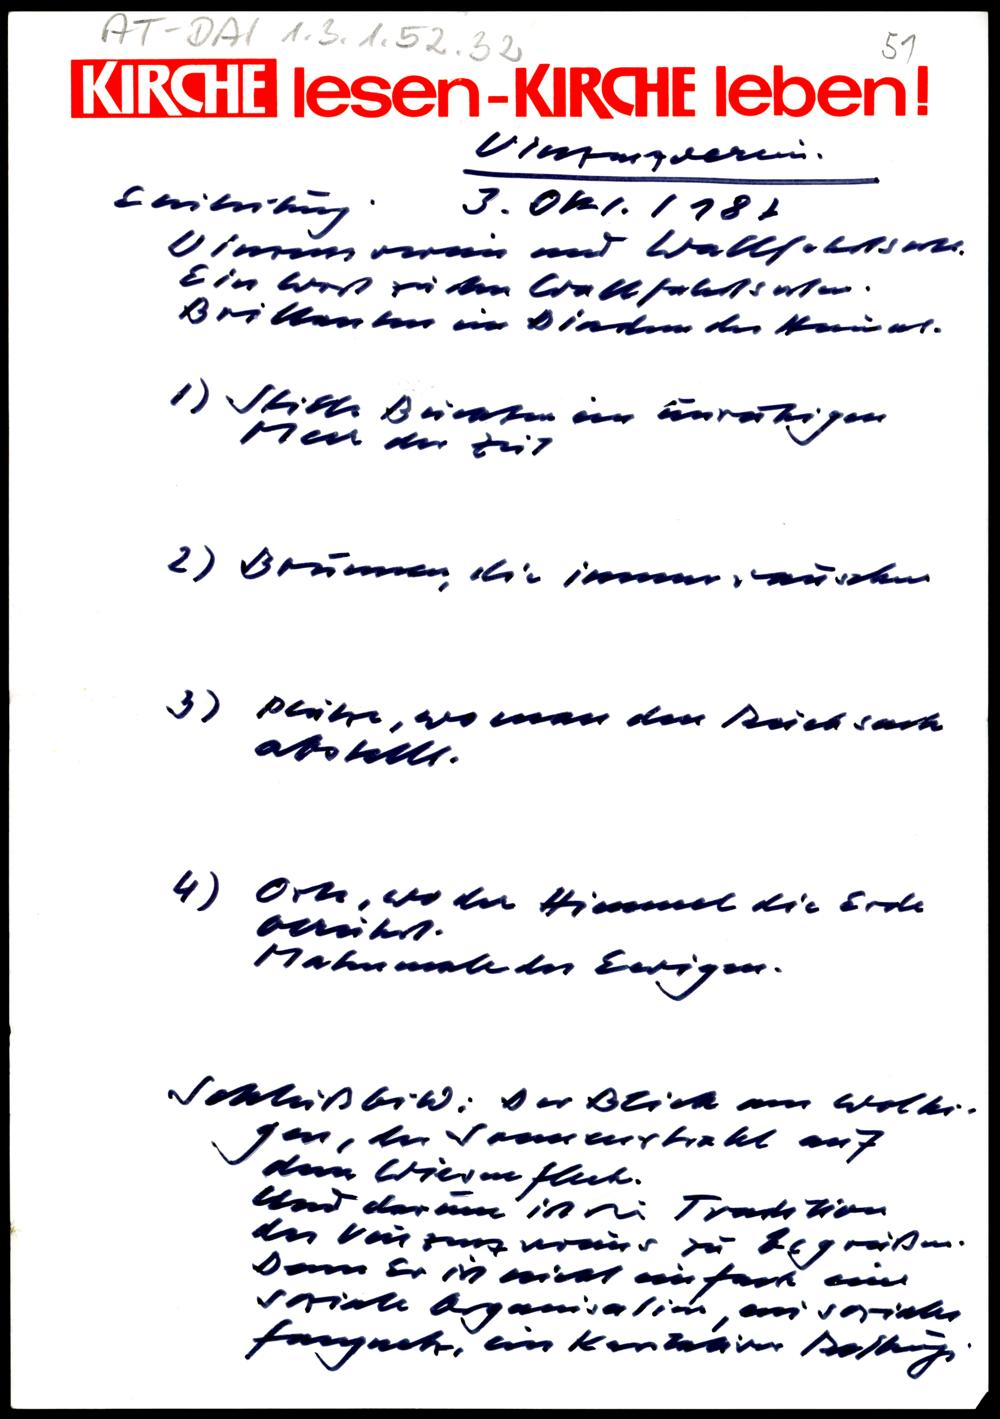 AT-DAI 1.3.1.52.32
51
KIRCHE lesen-KIRCHE leben!
Vinzenzverein.
Einleitung. 3. Okt. 1981
Vinzenzverein und Wallfahrtsorte.
Ein Wort zu den Wallfahrtsorten.
Brillanten im Diadem der Heimat.
1) Stille Buchten im unruhigen
Meer der Zeit
2) Brunnen, die immer rauschen
3) Plätze, wo man den Rucksack
abstellt.
4) Orte, wo der Himmel die Erde
berührt.
Mahnmale des Ewigen.
Schlußbild: Der Blick am wolki-
gen, der Sonnenstrahl auf
dem Wiesenfleck.
Und darum ist die Tradition
des Vinzenzvereins zu begrüßen.
Denn Er ist nicht einfach eine
soziale Organisation, ein soziales
Fangnetz, ein karitativer Rettungs-